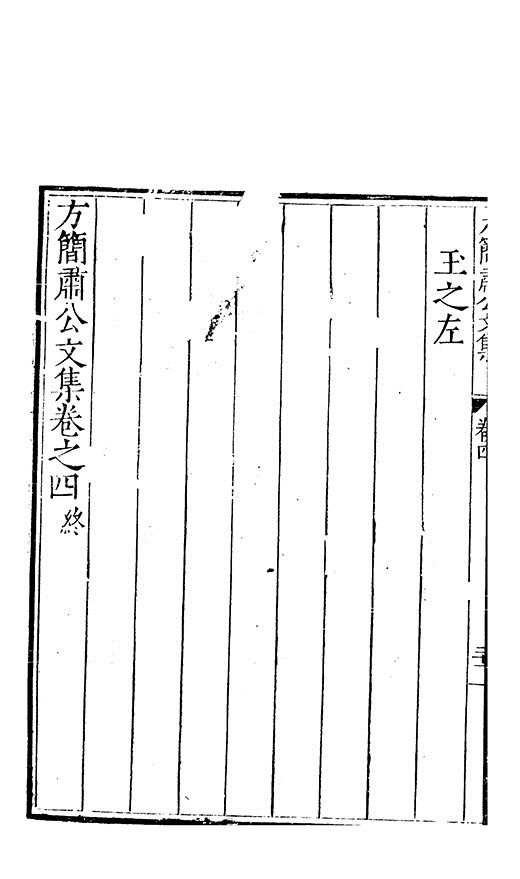 方簡肅公文集
卷四
玉之左
方簡肅公文集卷之四終